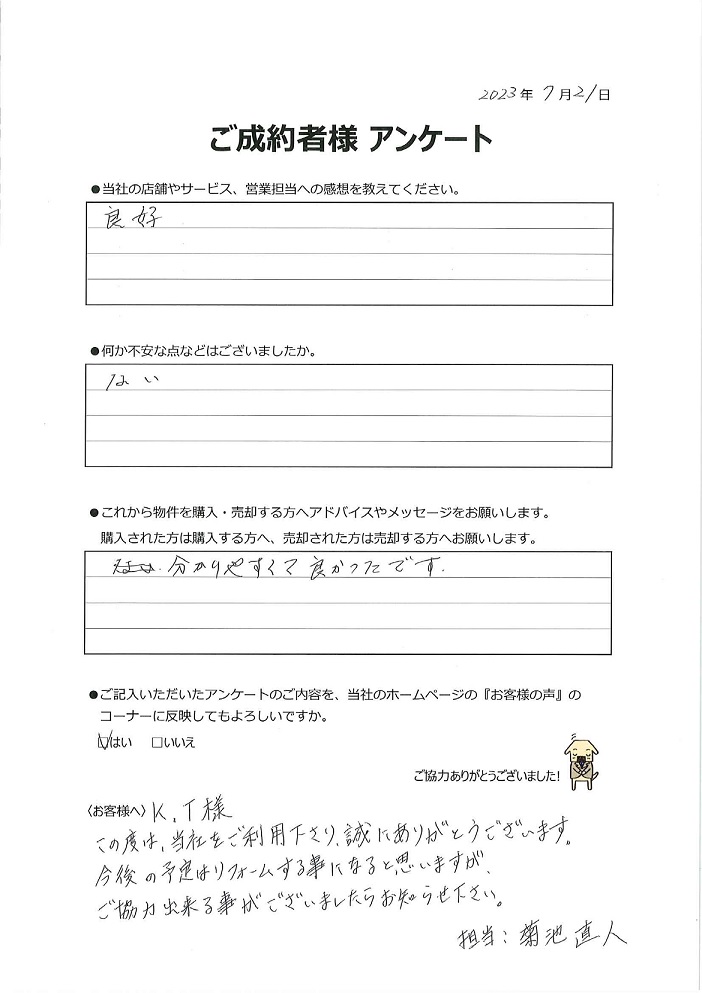 2023年 7月21日
ご成約者様 アンケート
●当社の店舗やサービス、営業担当への感想を教えてください。
良好
●何か不安な点などはございましたか。
ない
●これから物件を購入・売却する方へアドバイスやメッセージをお願いします。
購入された方は購入する方へ、売却された方は売却する方へお願いします。
分かりやすくて良かったです.
●ご記入いただいたアンケートのご内容を、当社のホームページの『お客様の声』の
コーナーに反映してもよろしいですか。
☑はい □いいえ
ご協力ありがとうございました!
〈お客様へ〉K.T様
この度は、当社をご利用下さり、誠にありがとうございます。
今後の予定はリフォームする事になると思いますが、
ご協力出来る事がございましたらお知らせ下さい。
担当：菊池直人